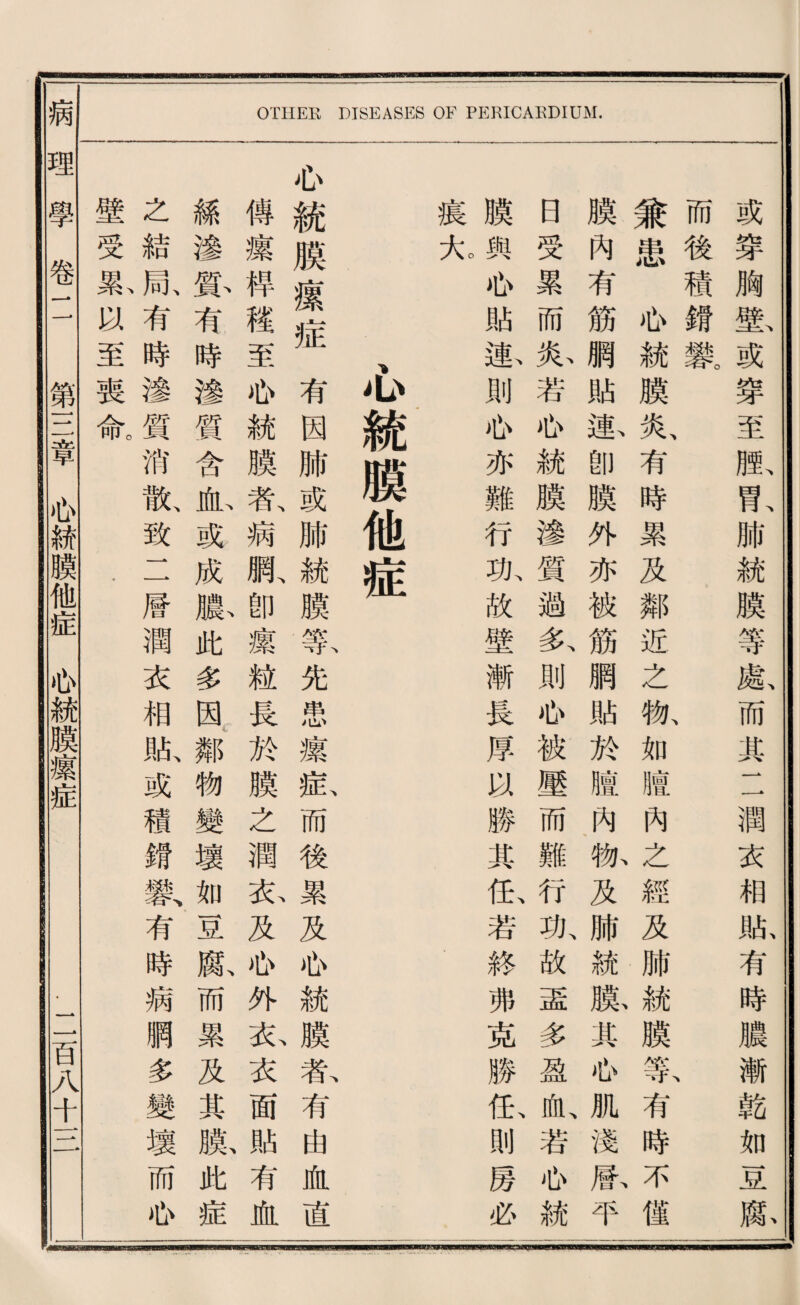 OTHER DISEASES OF PERICARDIUM.
或穿胸壁、或穿至脛、胃、肺統膜等處、而其二潤衣相貼、有時膿漸乾如豆腐、
而後積鎙礬。
兼患　心統膜炎、有時累及鄰近之物、如膻內之經及肺統膜等、有時不僅
膜內有筋膶貼連、卽膜外亦被筋膶貼於膻內物、及肺統膜、其心肌淺層、平
日受累而炎、若心統膜滲質過多、則心被壓而難行功、故盓多盈血、若心統
膜與心貼連、則心亦難行功、故壁漸長厚以勝其任、若終弗克勝任、則房必
痮大。
心統膜他症
心統膜瘰症　有因肺或肺統膜等、先患瘰症、而後累及心統膜者、有由血直
傳瘰桿𥠖至心統膜者、病膶、卽瘰粒長於膜之潤衣、及心外衣、衣面貼有血
綔滲質、有時滲質含血、或成膿、此多因鄰物變壞如豆腐、而累及其膜、此症
之結局、有時滲質消散、致二層潤衣相貼、或積鎙礬、有時病膶多變壞而心
壁受累、以至喪命。
病理學　卷二　第三章　心統膜他症　心統膜瘰症　二百八十三